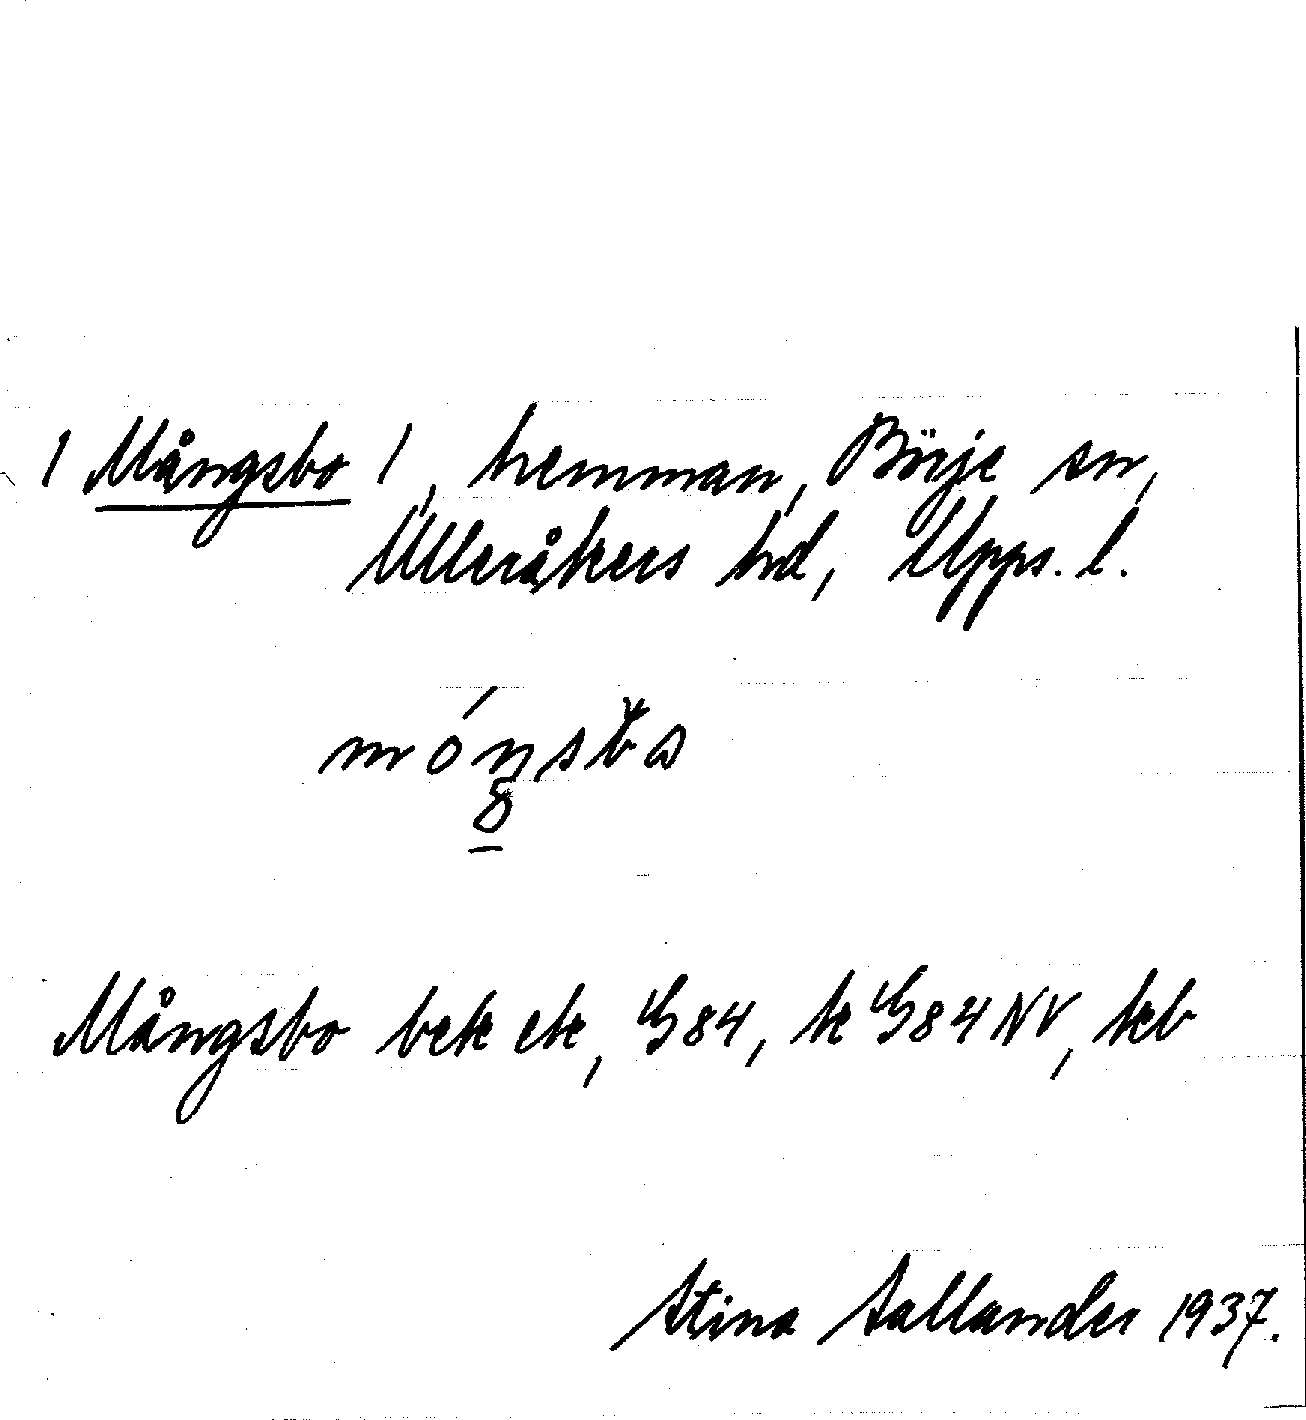 / Mångsbo /, hemman, Börje sn,
Ulleråkers hd, Upps. l.
Mångsbo bek ek, G84, k G84 NV, kb
Stina Sallander 1937.